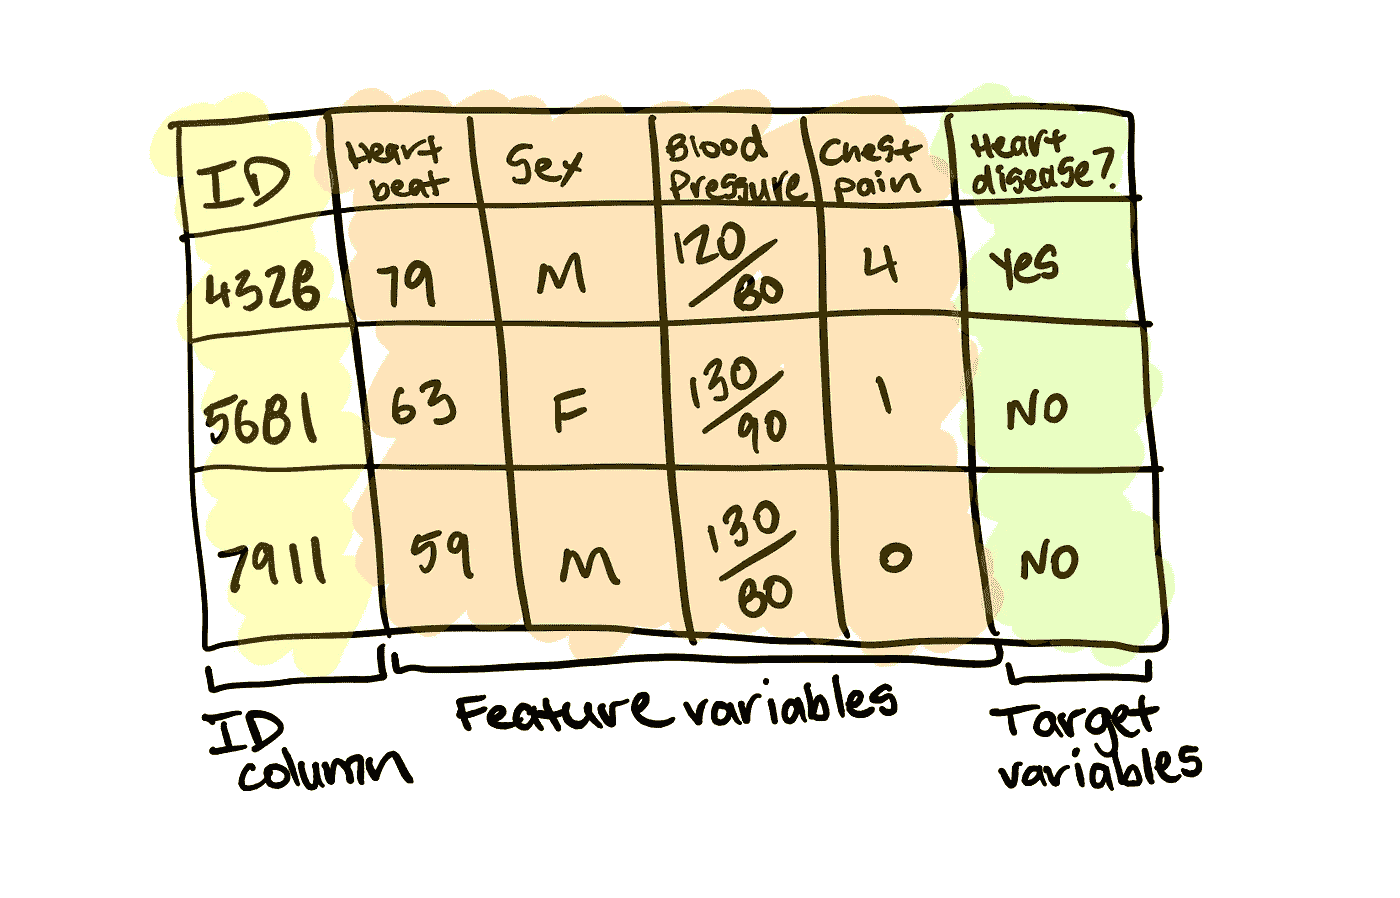 ID Heart beat Sex Blood Pressure Chest pain Heart disease?
4328 79 M 120/80 4 Yes
5681 63 F 130/90 1 NO
7911 59 M 130/80 0 NO
ID column Feature variables Target variables